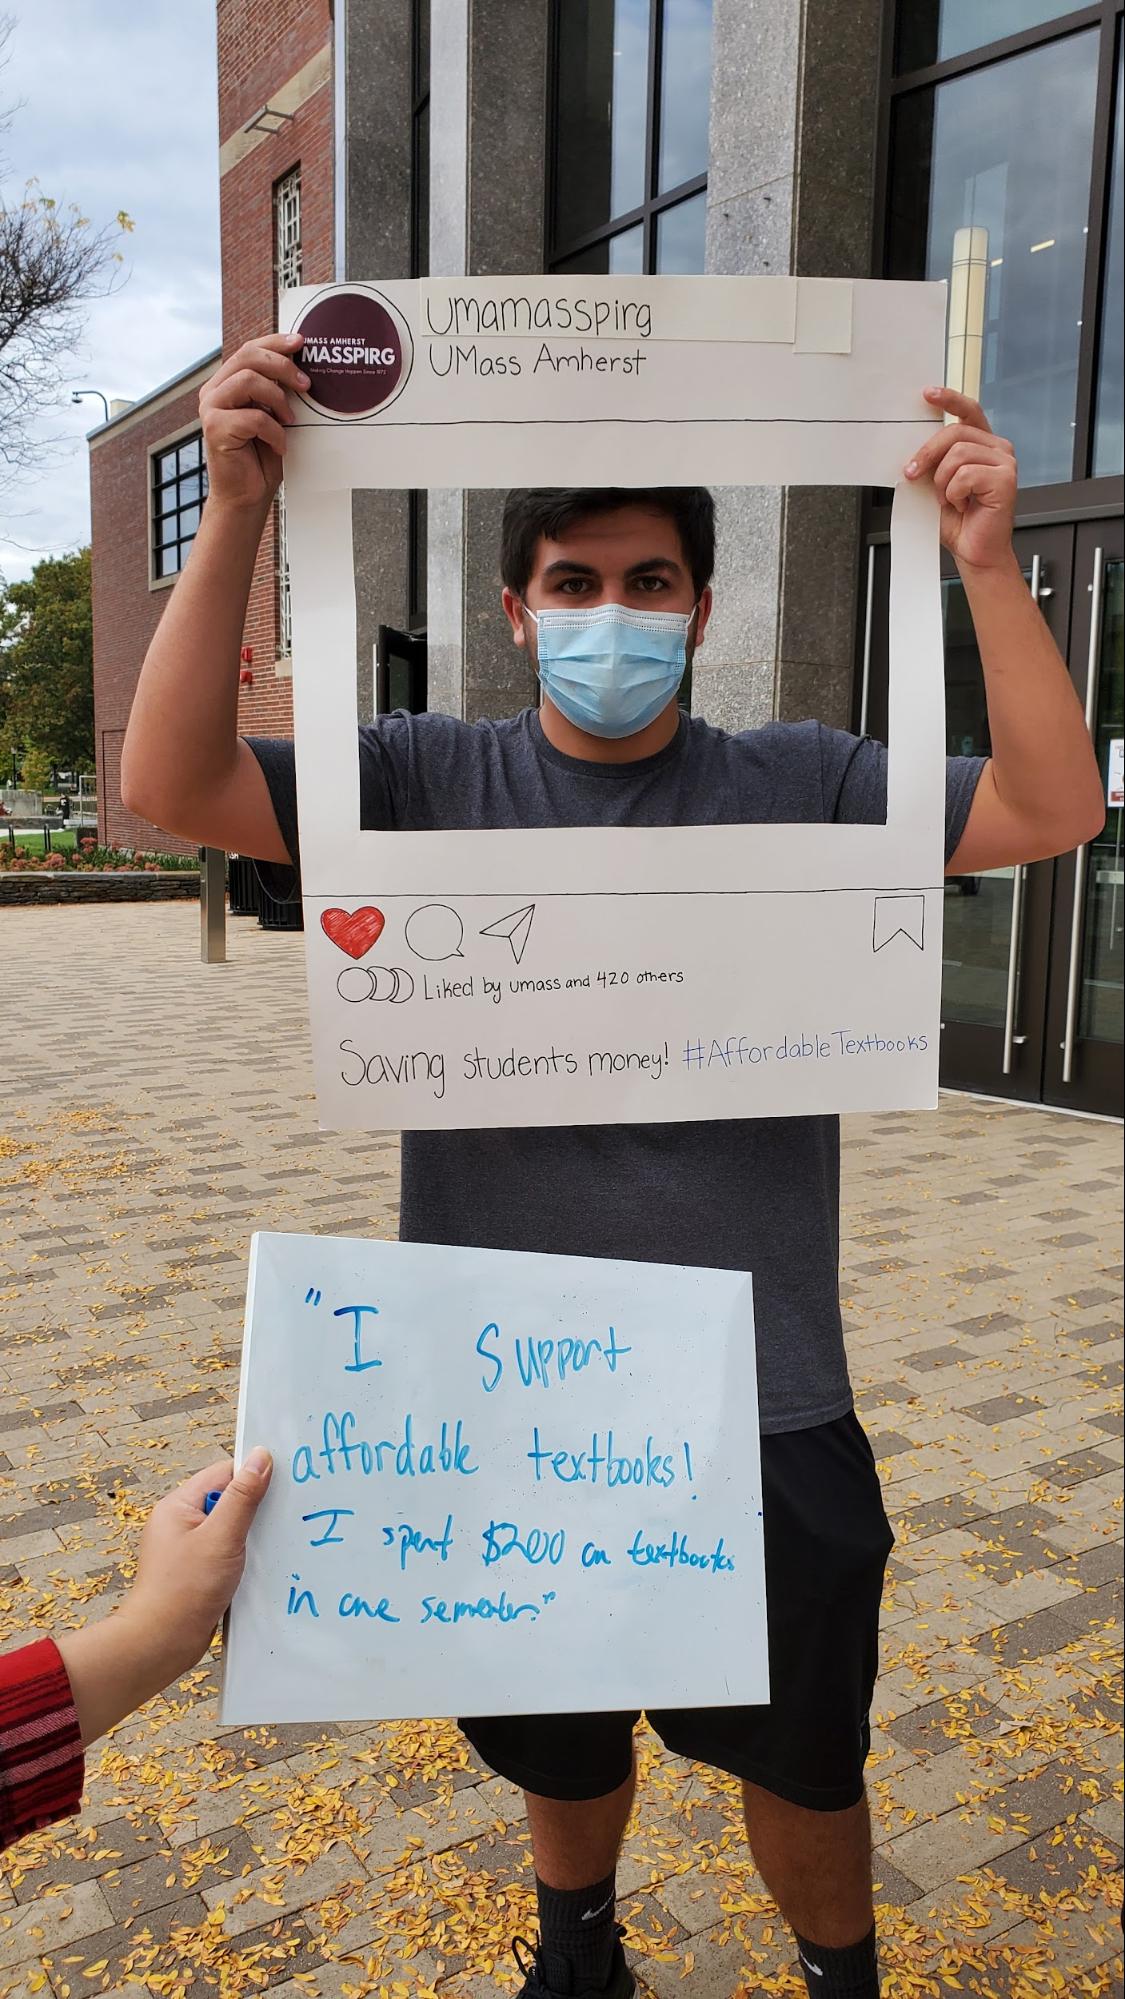 UMASS AMHERST
MASSPIRG
Making Change Happen Since 1972
Umamasspirg
UMass Amherst
Liked by umass and 420 others
Saving students money! #AffordableTextbooks
"I Support
affordable textbooks!
I spent $200 on textbooks
in one semester."